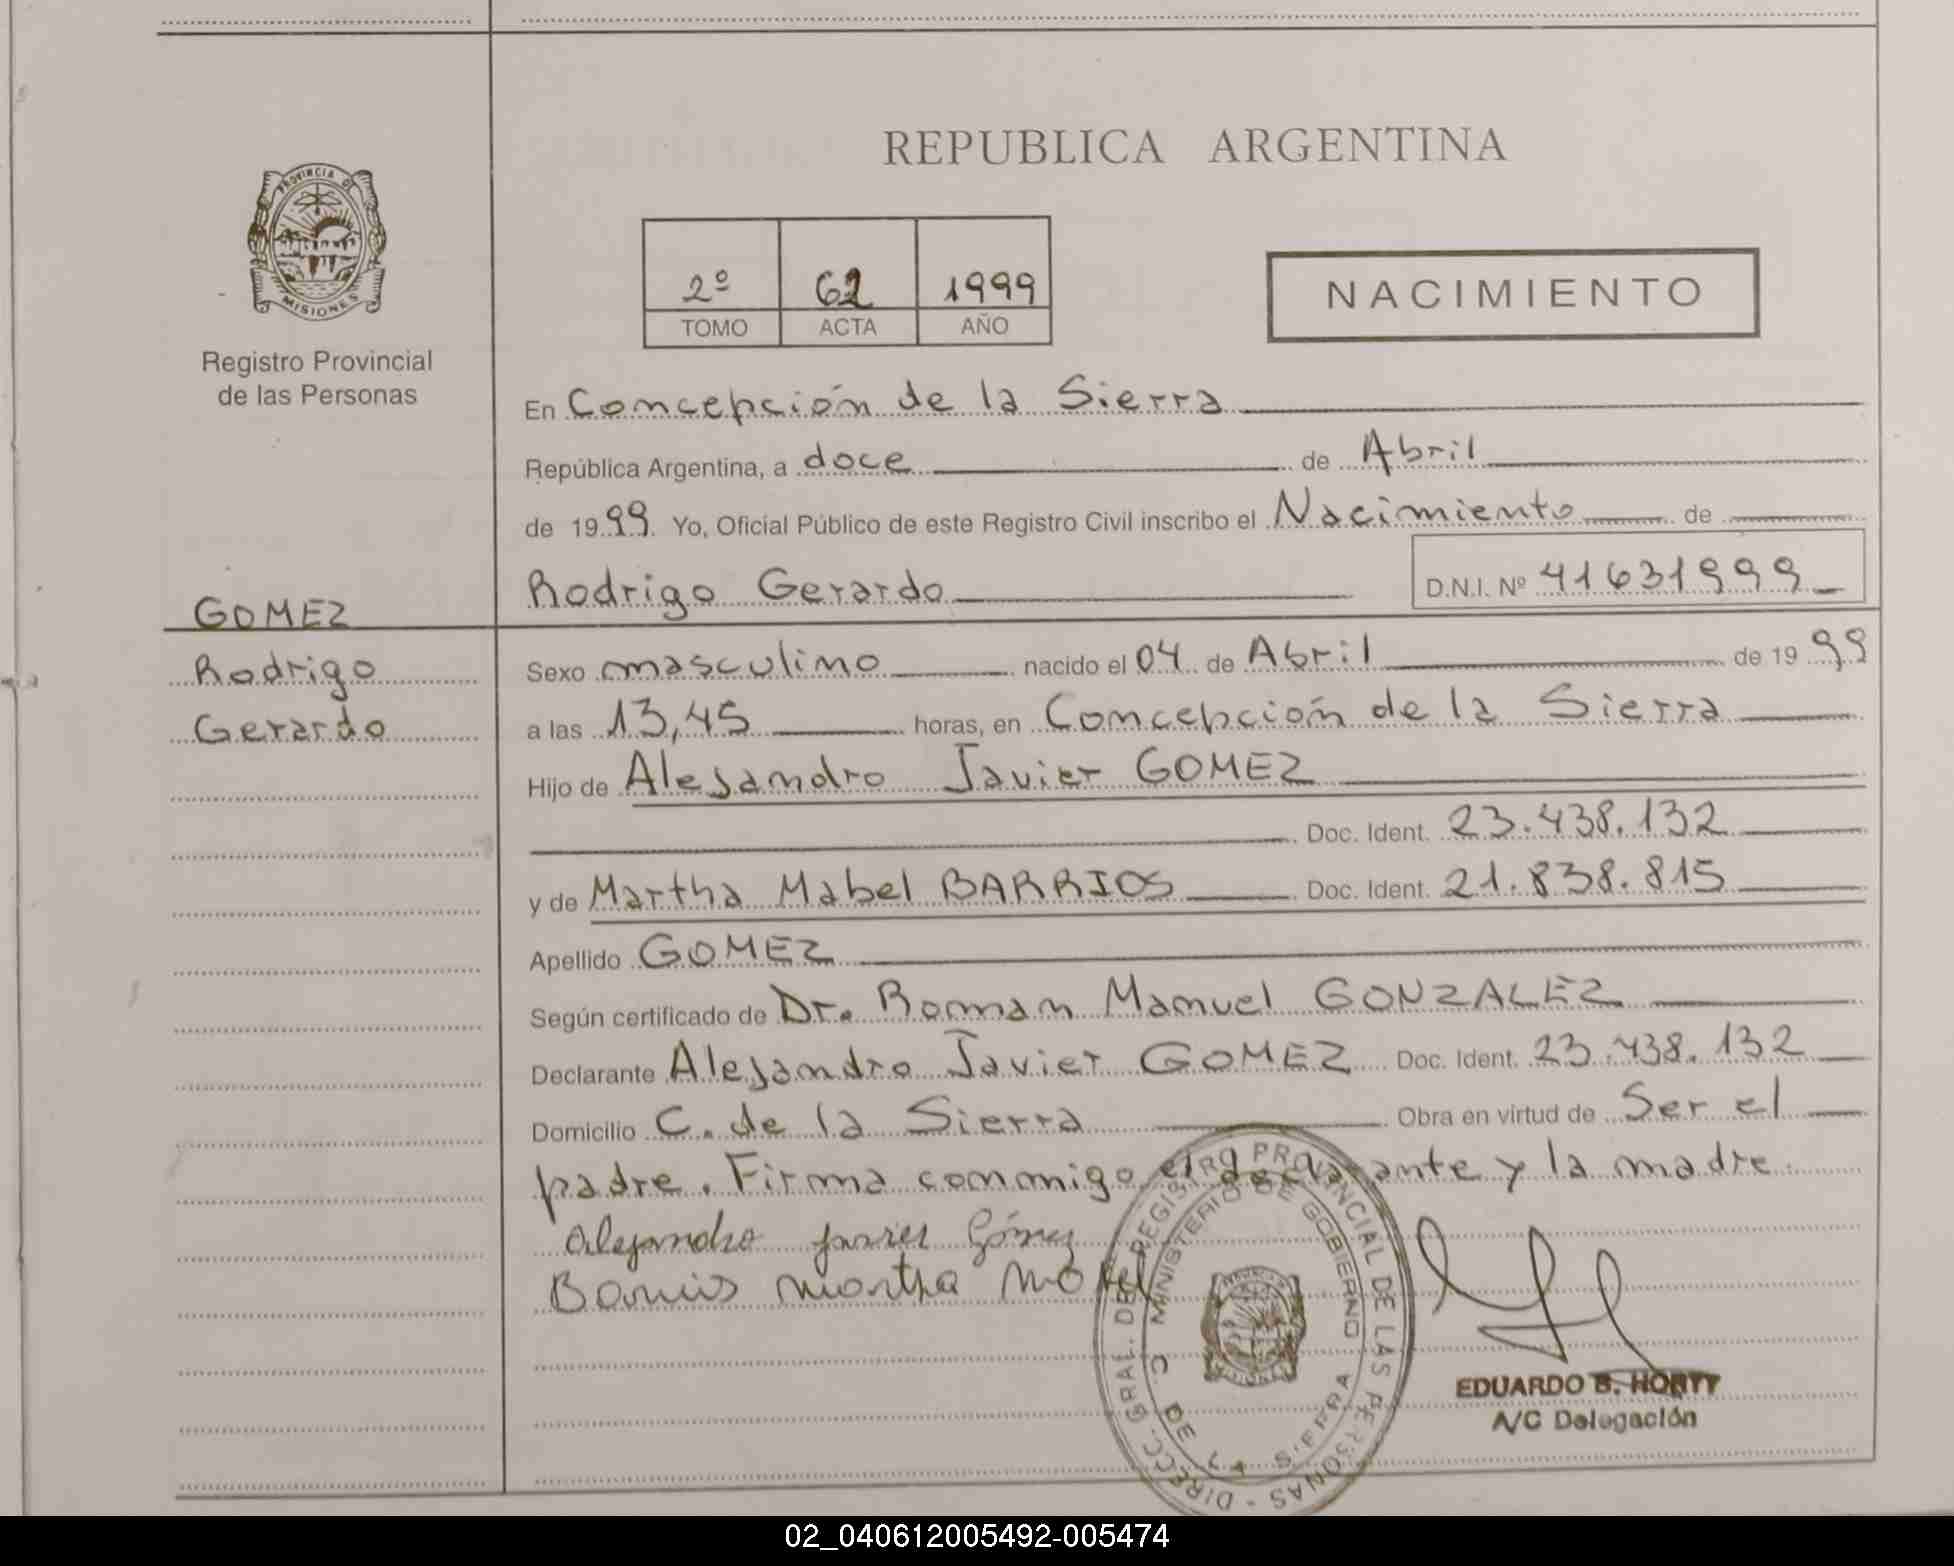 REPUBLICA ARGENTINA
PROVINCIA DE
MISIONES
Registro Provincial
de las Personas
2º 62 1999
TOMO ACTA AÑO
NACIMIENTO
En Concepción de la Sierra
República Argentina, a doce de Abril
de 1999 Yo, Oficial Público de este Registro Civil inscribo el Nacimiento de
Rodrigo Gerardo D.N.I. Nº 41631999
GOMEZ
Rodrigo
Gerardo
Sexo masculino nacido el 04 de Abril de 1999
a las 13,45 horas, en Concepción de la Sierra
Hijo de Alejandro Javier GOMEZ
Doc. Ident. 23.438.132
y de Martha Mabel BARRIOS Doc. Ident. 21.838.815
Apellido GOMEZ
Según certificado de Dr. Roman Manuel GONZALEZ
Declarante Alejandro Javier GOMEZ Doc. Ident. 23.438.132
Domicilio C. de la Sierra Obra en virtud de Ser el
padre. Firma conmigo el declarante y la madre
Alejandro Javier Gómez
Barrios Martha Mabel
DIRECC. GRAL. DEL REGISTRO PROVINCIAL DE LAS PERSONAS
MINISTERIO DE GOBIERNO
C. DE LA SIERRA
EDUARDO B. HORTT
A/C Delegación
02_040612005492-005474